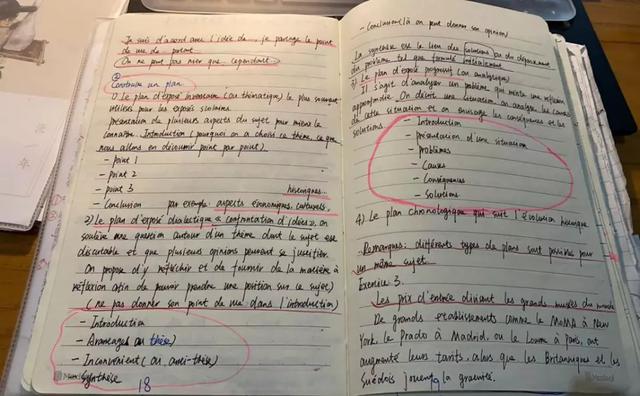 Je suis d'accord avec l'idée de... je partage le point
de vue de parent
On ne peut pas nier que cependant
②
Construire un plan
1) Le plan d'exposé inventaire (ou thématique) le plus souvent
utilisés pour les exposés scolaires
présentation du plusieurs aspects du sujet pour mieux le
connaître. Introduction (pourquoi on a choisi ce thème, ce que
nous allons en découvrir point par point)
- point 1
- point 2
- point 3 historiques
- Conclusion par exemple: aspects économiques, culturels
2) Le plan d'exposé dialectique « confrontation d'idées », on
soulève une question autour d'un thème dont le sujet est
discutable et que plusieurs opinions peuvent se justifier.
On propose d'y réfléchir et de fournir de la matière à
réflexion afin de pouvoir prendre une position sur ce sujet)
(ne pas donner son point de vue dans l'introduction)
- Introduction
- Avantages ou thèse)
- Inconvenient (ou anti-thèse)
Synthèse
18
- Conclusion (là on peut donner son opinion)
La synthèse est le lien des solutions ou du dépassement
du problème tel que formulé initialement
3) Le plan d'exposé progressif (ou analytique)
Il s'agit d'analyser un problème qui mérite une réflexion
approfondie. On décrit une situation, on analyse les causes
de cette situation et on envisage les conséquences et les
solutions.
- Introduction
- présentation d'une situation
- Problèmes
- Causes
- Conséquences
- Solutions
4) Le plan chronologique qui suit l'évolution historique
Remarques: différents types de plans sont possibles pour
un même sujet.
Exercice 3.
Les prix d'entrée divisent les grands musées du monde
De grands établissements comme le MoMA à New
York, le Prado à Madrid, ou le Louvre à Paris, ont
augmenté leurs tarifs, alors que les Britanniques et les
Suédois jouent la gratuité.
19